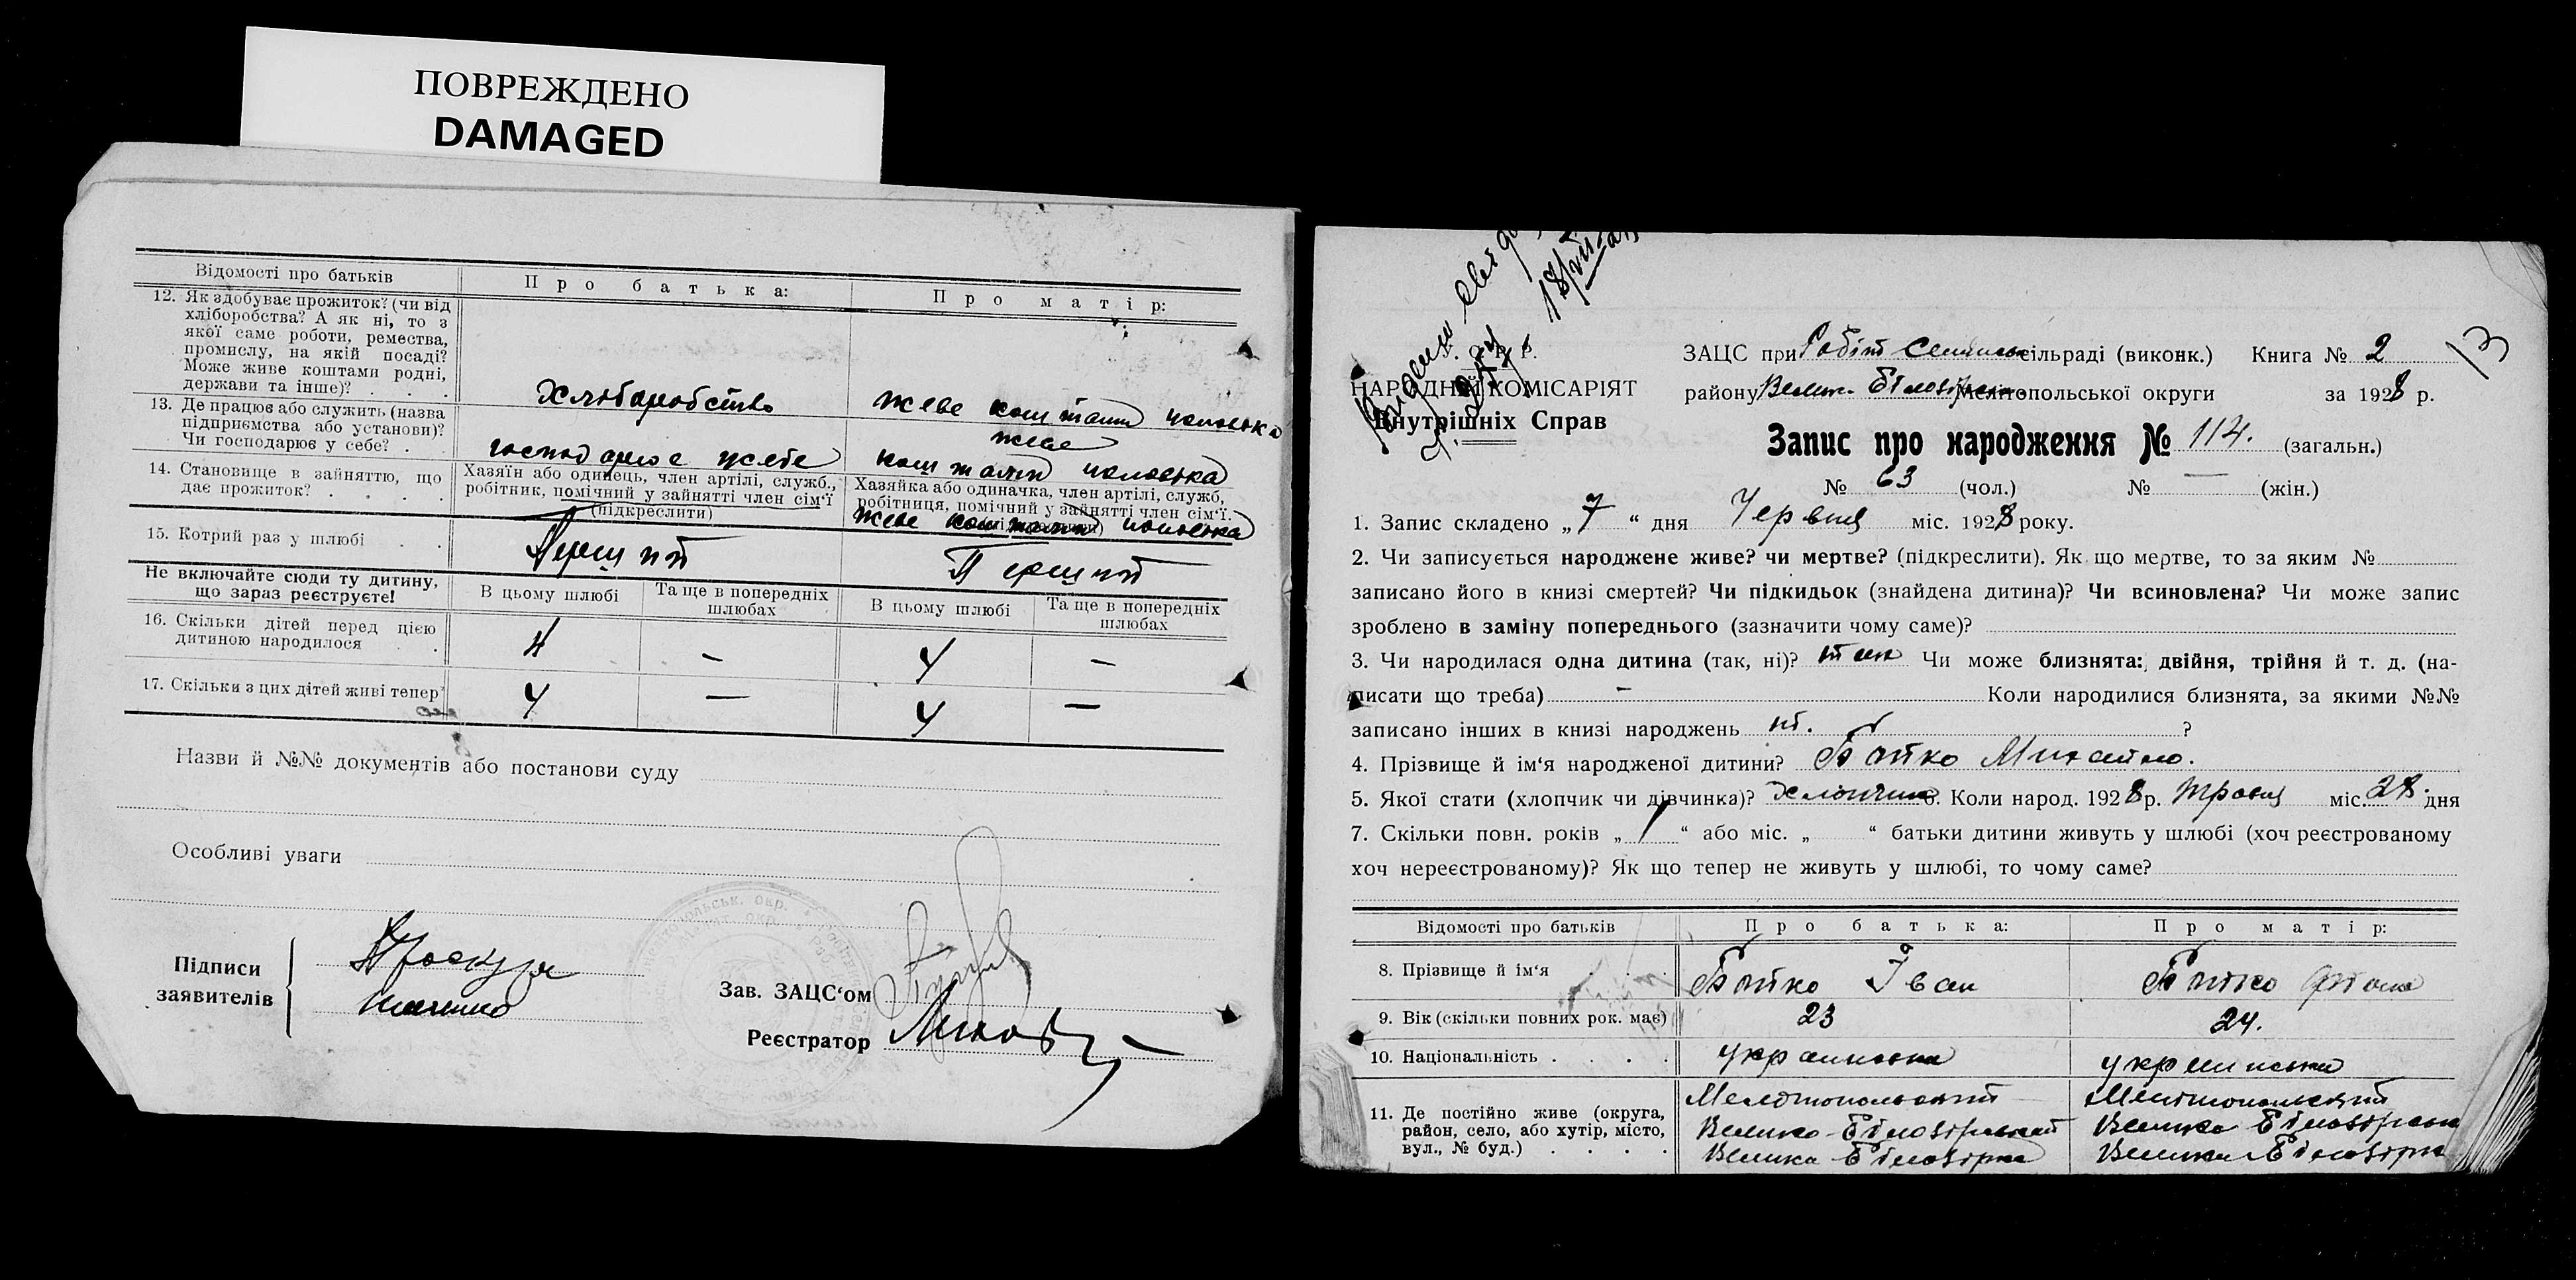 ПОВРЕЖДЕНО
DAMAGED
Відомості про батьків
Про батька:
Про матір:
12. Як здобуває прожиток? (чи від
хліборобства? А як ні, то з
якої саме роботи, ремества,
промислу, на якій посаді?
Може живе коштами родні,
держави та інше)? . . .
Хліборобство
живе коштами чоловіка
13. Де працює або служить (назва
підприємства або установи)?
Чи господарює у себе? .
господарює
коштами чоловіка
14. Становище в зайняттю, що
дає прожиток? . . . .
Хазяїн або одинець, член артілі, служб.,
робітник, помічний у зайнятті член сім'ї
(підкреслити)
Хазяйка або одиначка, член артілі, служб,
робітниця, помічний у зайнятті член сім'ї.
живе коштами чоловіка
15. Котрий раз у шлюбі . .
Перший
Перший
Не включайте сюди ту дитину,
що зараз реєструєте!
В цьому шлюбі
Та ще в попередніх
шлюбах
В цьому шлюбі
Та ще в попередніх
шлюбах
16. Скільки дітей перед цією
дитиною народилося . .
4 — 4 —
17. Скільки з цих дітей живі тепер
4 — 4 —
Назви й №№ документів або постанови суду
Особливі уваги
Підписи
заявителів
Зав. ЗАЦС'ом
Реєстратор
13
НАРОДНІЙ КОМІСАРІЯТ
Внутрішніх Справ
ЗАЦС при сільраді (виконк.) Книга № 2
району Велик. Білозірськ. Мелітопольської округи за 1928 р.
Запис про народження № 114. (загальн.)
№ 63 (чол.) № — (жін.)
1. Запис складено „7“ дня Червня міс. 1928 року.
2. Чи записується народжене живе? чи мертве? (підкреслити). Як що мертве, то за яким №
записано його в книзі смертей? Чи підкидьок (знайдена дитина)? Чи всиновлена? Чи може запис
зроблено в заміну попереднього (зазначити чому саме)?
3. Чи народилася одна дитина (так, ні)? так Чи може близнята: двійня, трійня й т. д. (на-
писати що треба) – Коли народилися близнята, за якими №№
записано інших в книзі народжень ?
4. Прізвище й ім'я народженої дитини? Бойко Михайло.
5. Якої стати (хлопчик чи дівчинка)? Хлопчик 6. Коли народ. 1928 р. Травня міс. 28 дня
7. Скільки повн. років „1“ або міс. „ “ батьки дитини живуть у шлюбі (хоч реєстрованому
хоч нереєстрованому)? Як що тепер не живуть у шлюбі, то чому саме?
Відомості про батьків
Про батька:
Про матір:
8. Прізвище й ім'я . . .
Бойко Іван
Бойко
9. Вік (скільки повних рок. має)
23
24.
10. Національність . . . .
українська
українська
11. Де постійно живе (округа,
район, село, або хутір, місто,
вул., № буд.) . . . .
Мелітопольский
Велико-Білозірський
Велика Білозірка
Мелітопольский
Велико Білозірськ
Велика Білозірка